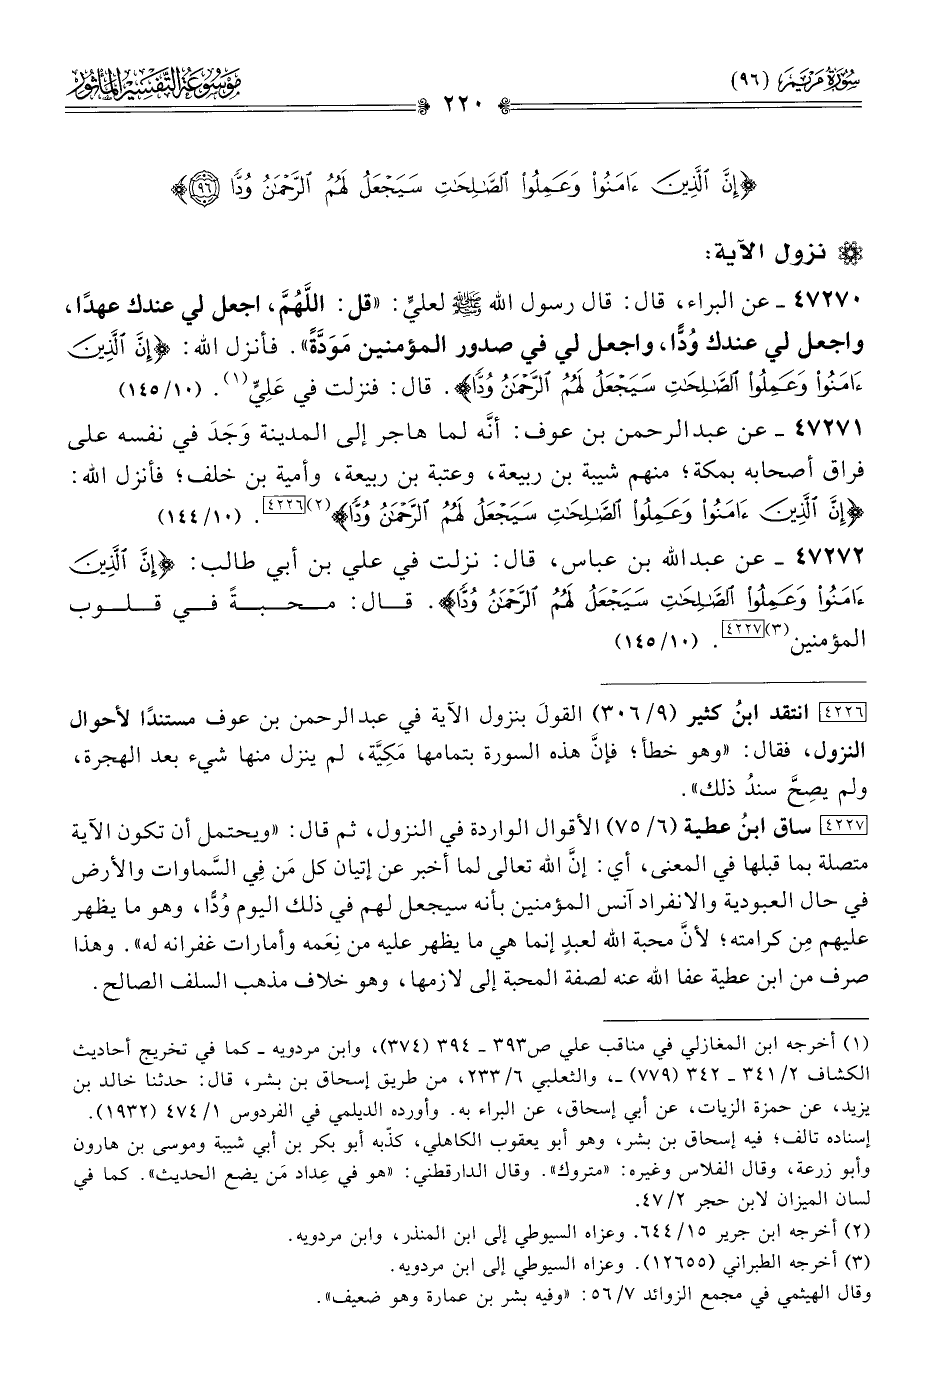 سُورَةُ مَرْيَمَ (٩٦)
٢٢٠
مَوْسُوعَةُ التَّفْسِيرِ المَأْثُور
﴿إِنَّ ٱلَّذِينَ ءَامَنُوا۟ وَعَمِلُوا۟ ٱلصَّـٰلِحَـٰتِ سَيَجْعَلُ لَهُمُ ٱلرَّحْمَـٰنُ وُدًّا ٩٦﴾
نزول الآية:
٤٧٢٧٠ ـ عن البراء، قال: قال رسول الله ﷺ لعليٍّ: «قل: اللَّهُمَّ، اجعل لي عندك عهدًا،
واجعل لي عندك وُدًّا، واجعل لي في صدور المؤمنين مَوَدَّةً». فأنزل الله: ﴿إِنَّ ٱلَّذِينَ
ءَامَنُوا۟ وَعَمِلُوا۟ ٱلصَّـٰلِحَـٰتِ سَيَجْعَلُ لَهُمُ ٱلرَّحْمَـٰنُ وُدًّا﴾. قال: فنزلت في عَلِيٍّ(١). (١٤٥/١٠)
٤٧٢٧١ ـ عن عبدالرحمن بن عوف: أنَّه لما هاجر إلى المدينة وَجَدَ في نفسه على
فراق أصحابه بمكة؛ منهم شيبة بن ربيعة، وعتبة بن ربيعة، وأمية بن خلف؛ فأنزل الله:
﴿إِنَّ ٱلَّذِينَ ءَامَنُوا۟ وَعَمِلُوا۟ ٱلصَّـٰلِحَـٰتِ سَيَجْعَلُ لَهُمُ ٱلرَّحْمَـٰنُ وُدًّا﴾(٢)[٤٢٢٦]. (١٤٤/١٠)
٤٧٢٧٢ ـ عن عبدالله بن عباس، قال: نزلت في علي بن أبي طالب: ﴿إِنَّ ٱلَّذِينَ
ءَامَنُوا۟ وَعَمِلُوا۟ ٱلصَّـٰلِحَـٰتِ سَيَجْعَلُ لَهُمُ ٱلرَّحْمَـٰنُ وُدًّا﴾. قال: محبةً في قلوب
المؤمنين(٣)[٤٢٢٧]. (١٤٥/١٠)
[٤٢٢٦] انتقد ابنُ كثير (٣٠٦/٩) القولَ بنزول الآية في عبدالرحمن بن عوف مستندًا لأحوال
النزول، فقال: «وهو خطأ؛ فإنَّ هذه السورة بتمامها مَكِيَّة، لم ينزل منها شيء بعد الهجرة،
ولم يصِحَّ سندُ ذلك».
[٤٢٢٧] ساق ابنُ عطية (٧٥/٦) الأقوال الواردة في النزول، ثم قال: «ويحتمل أن تكون الآية
متصلة بما قبلها في المعنى، أي: إنَّ الله تعالى لما أخبر عن إتيان كل مَن فِي السَّماوات والأرض
في حال العبودية والانفراد آنس المؤمنين بأنه سيجعل لهم في ذلك اليوم وُدًّا، وهو ما يظهر
عليهم مِن كرامته؛ لأنَّ محبة الله لعبدٍ إنما هي ما يظهر عليه من نِعَمه وأمارات غفرانه له». وهذا
صرف من ابن عطية عفا الله عنه لصفة المحبة إلى لازمها، وهو خلاف مذهب السلف الصالح.
(١) أخرجه ابن المغازلي في مناقب علي ص٣٩٣ ـ ٣٩٤ (٣٧٤)، وابن مردويه ـ كما في تخريج أحاديث
الكشاف ٣٤١/٢ ـ ٣٤٢ (٧٧٩) ـ، والثعلبي ٢٣٣/٦، من طريق إسحاق بن بشر، قال: حدثنا خالد بن
يزيد، عن حمزة الزيات، عن أبي إسحاق، عن البراء به. وأورده الديلمي في الفردوس ٤٧٤/١ (١٩٣٢).
إسناده تالف؛ فيه إسحاق بن بشر، وهو أبو يعقوب الكاهلي، كذّبه أبو بكر بن أبي شيبة وموسى بن هارون
وأبو زرعة، وقال الفلاس وغيره: «متروك». وقال الدارقطني: «هو في عِداد مَن يضع الحديث». كما في
لسان الميزان لابن حجر ٤٧/٢.
(٢) أخرجه ابن جرير ٦٤٤/١٥. وعزاه السيوطي إلى ابن المنذر، وابن مردويه.
(٣) أخرجه الطبراني (١٢٦٥٥). وعزاه السيوطي إلى ابن مردويه.
وقال الهيثمي في مجمع الزوائد ٥٦/٧: «وفيه بشر بن عمارة وهو ضعيف».